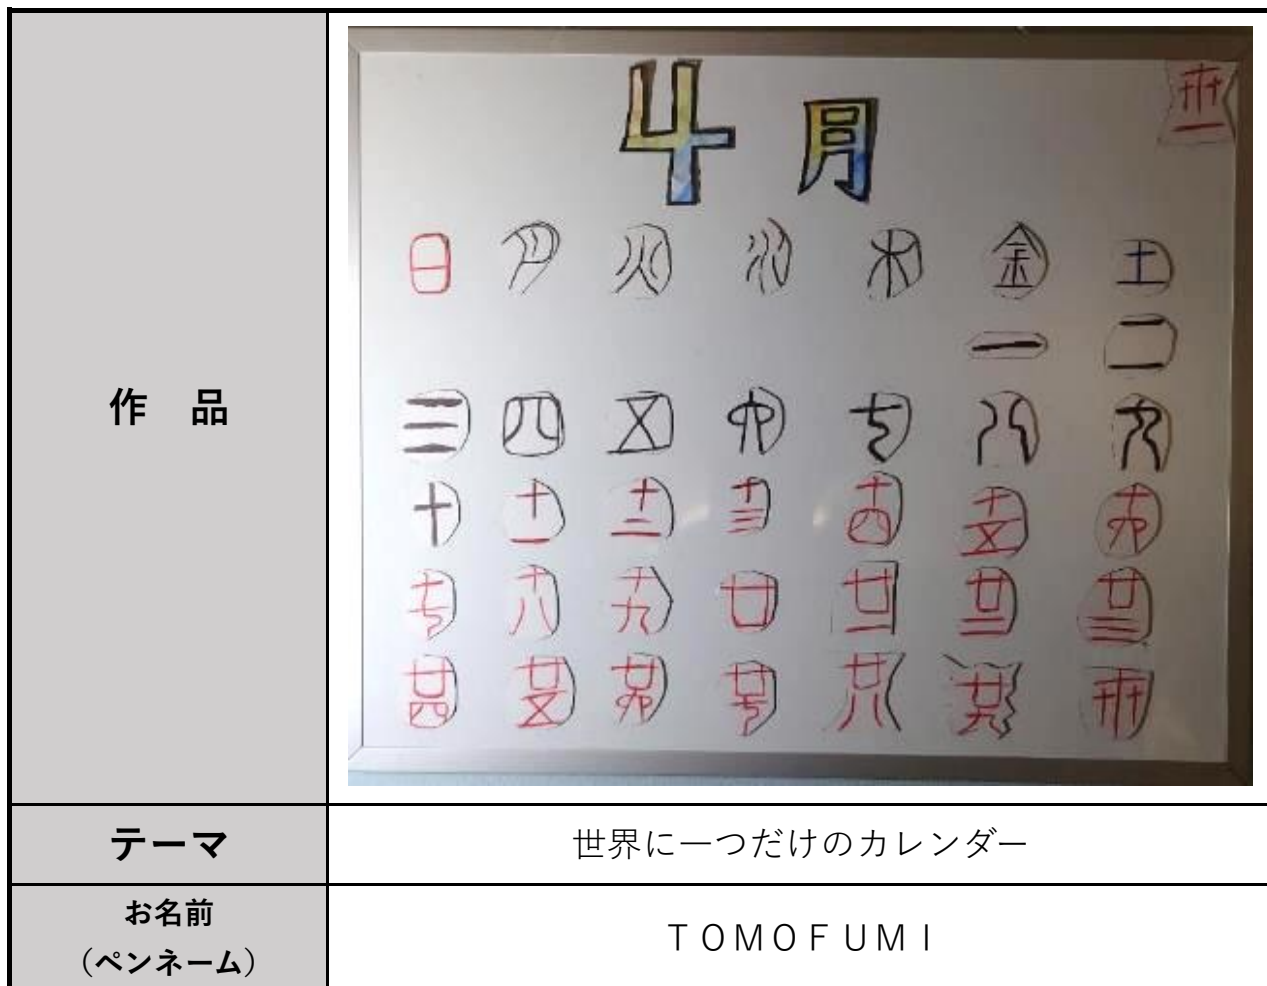 作 品
卅一
4月
日 月 火 水 木 金 土
一 二
三 四 五 六 七 八 九
十 十一 十二 十三 十四 十五 十六
十七 十八 十九 廿 廿一 廿二 廿三
廿四 廿五 廿六 廿七 廿八 廿九 卅
テーマ
世界に一つだけのカレンダー
お名前
（ペンネーム）
ＴＯＭＯＦＵＭＩ